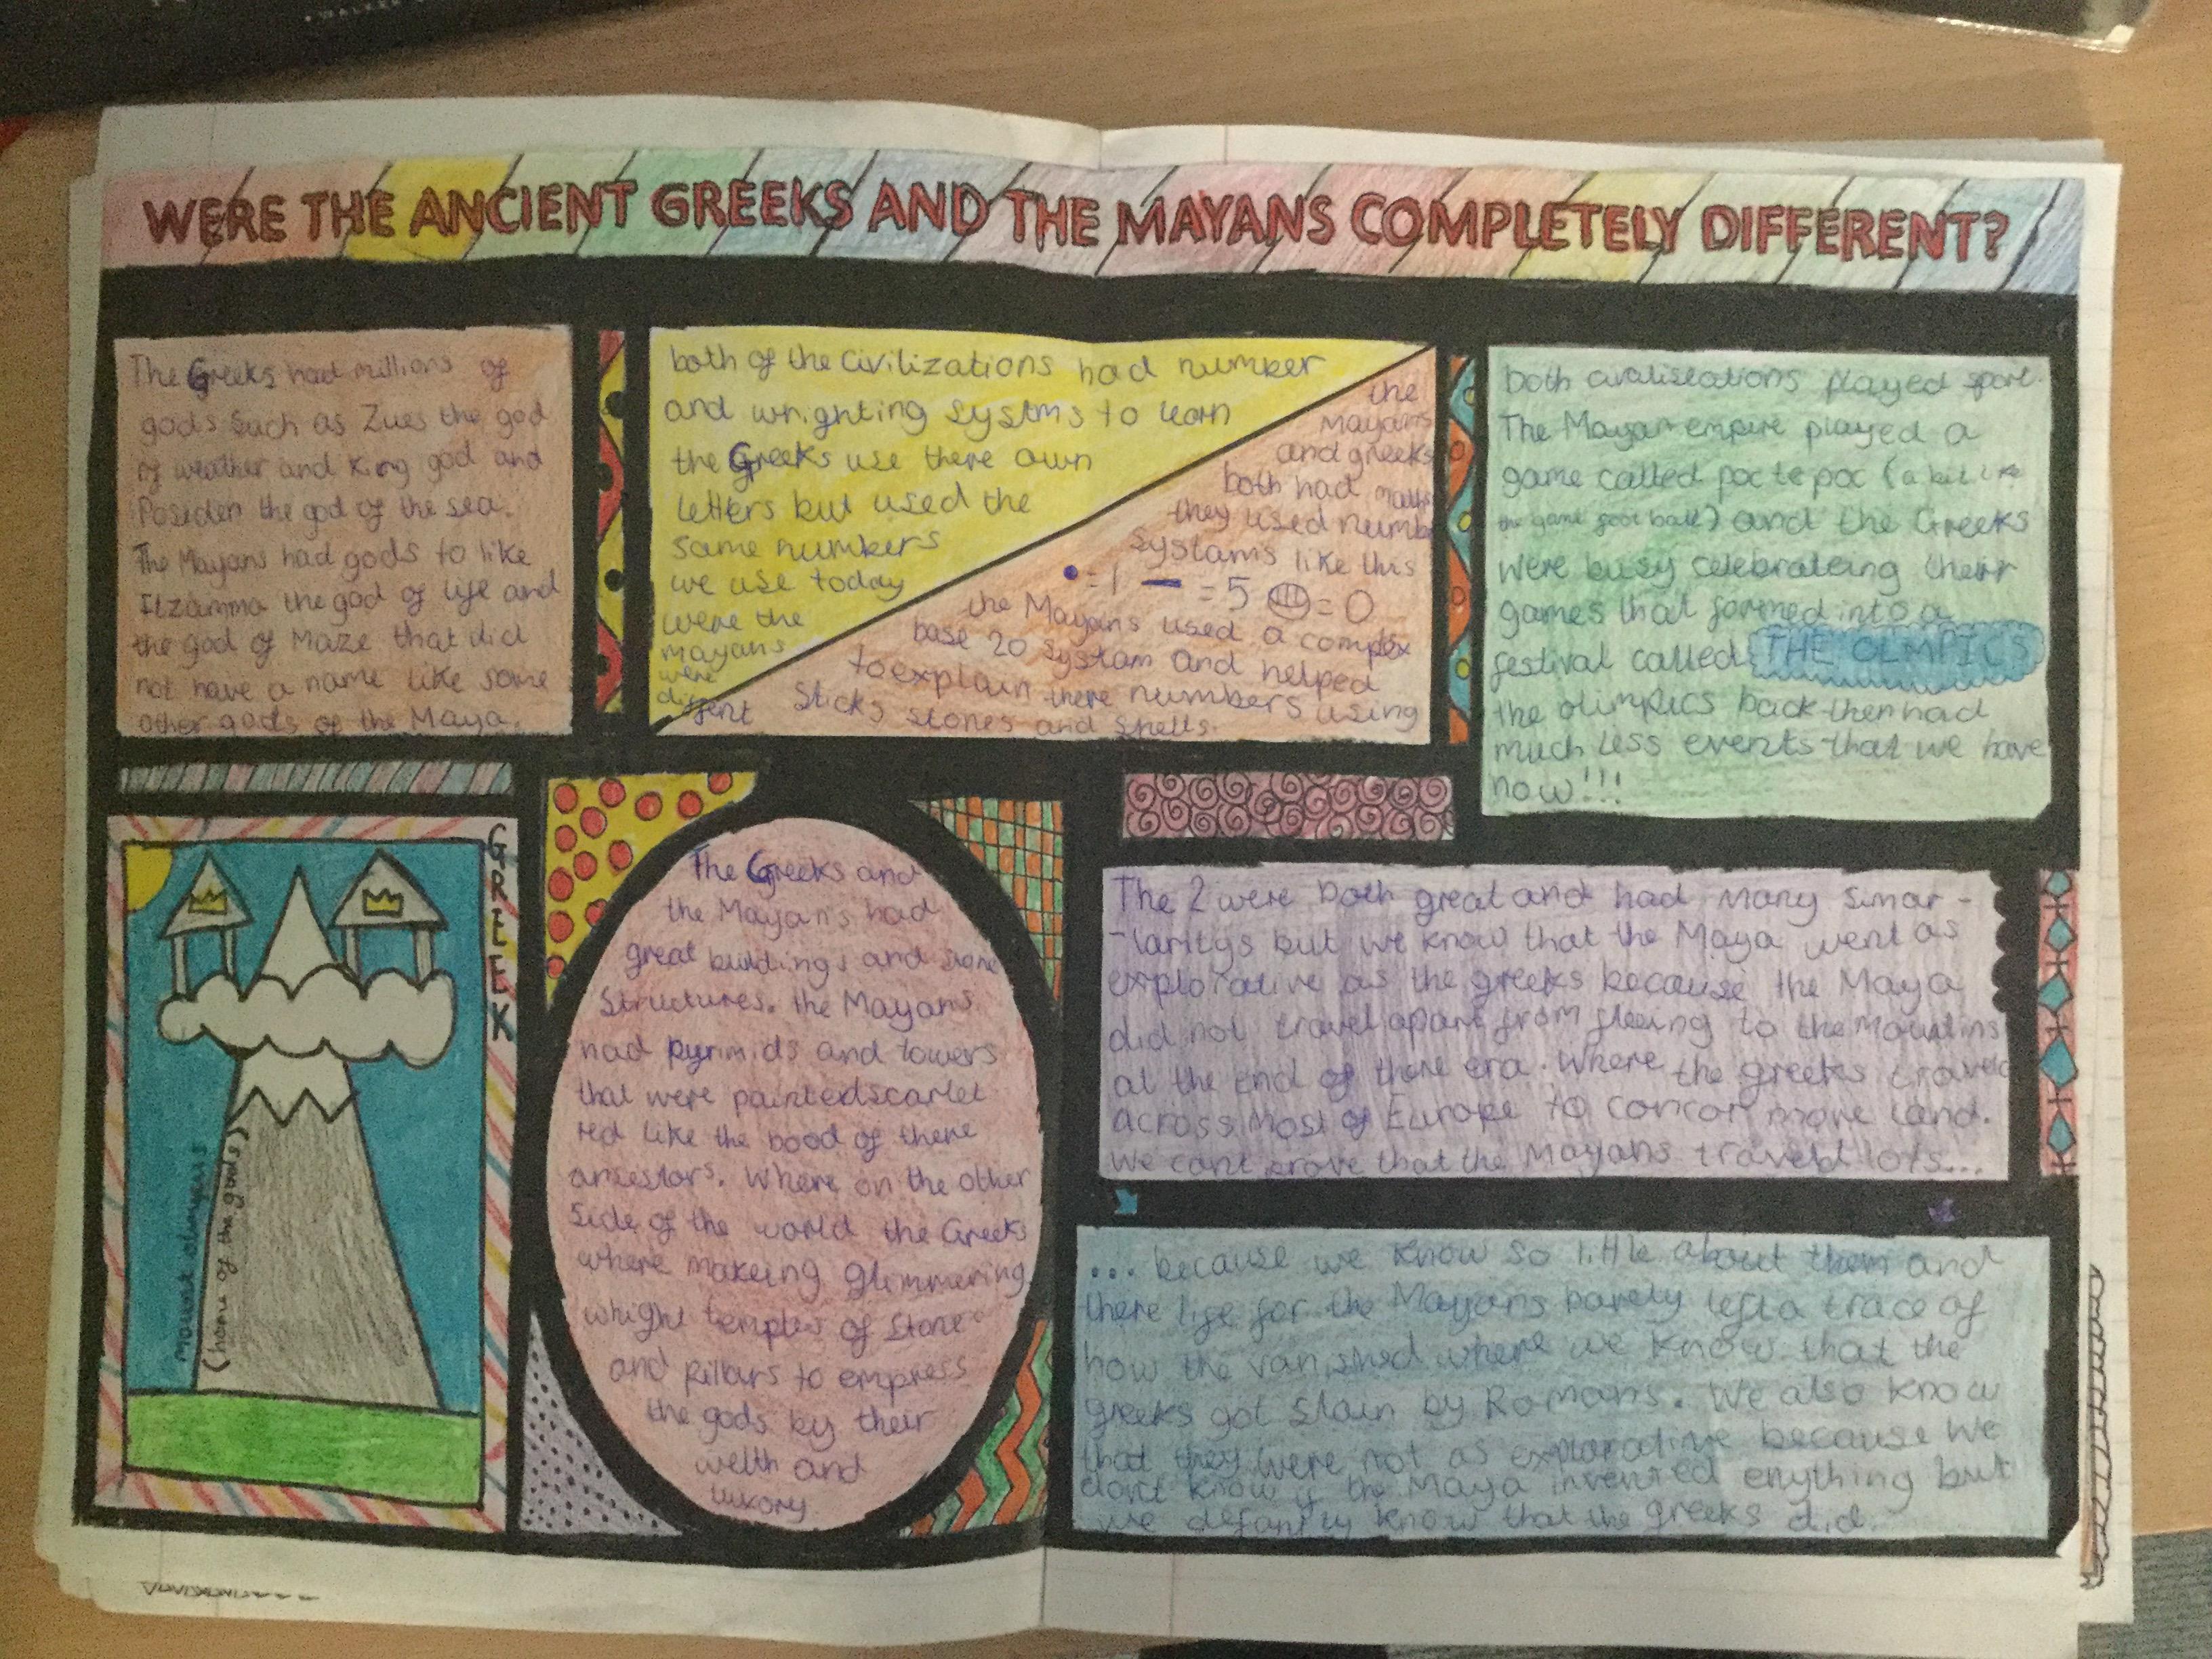 WALKER
WERE THE ANCIENT GREEKS AND THE MAYANS COMPLETELY DIFFERENT?
The Greeks had millions of
gods such as Zues the god
of weather and King god and
Poseiden the god of the sea.
The Mayans had gods to like
Itzamma the god of life and
the god of Maze that did
not have a name like some
other gods of the Maya.
both of the civilizations had number
and wrighting systms to learn
the Greeks use there own
letters but used the
same numbers
we use today
were the
mayans
were
diffent
the
mayans
and greeks
both had maths
they used numb
systams like this
• = 1 — = 5 = 0
the Mayans used a complex
base 20 systam and helped
to explain there numbers using
sticks stones and shells.
both civalisations played sport.
The Mayan empire played a
game called poc te poc (a bit like
the game foot ball) and the Greeks
were busy celebrateing their
games that formed into a
festival called THE OLMPICS
the olimpics back then had
much less events that we have
now!!!
GREEK
mount olympus
(home of the gods)
The Greeks and
the Mayan's had
great buildings and stone
structures. the Mayans
had pyrmids and towers
that were painted scarlet
red like the bood of there
ancestors. Where on the other
side of the world the Greeks
where makeing glimmering
whight temples of stone
and pillars to empress
the gods by their
welth and
luxory.
The 2 were both great and had many simar-
-laritys but we know that the Maya went as
explorative as the greeks because the Maya
did not travel apart from fleeing to the mountins
at the end of there era. Where the greeks traveld
across most of Europe to concor more land.
We cant prove that the Mayans traveld lots...
... because we know so little about them and
there life for the Mayans barely left a trace of
how the vanished where we know that the
greeks got slain by Romans. We also know
that they were not as explorative because we
don't know if the Maya invented enything but
we defantly know that the greeks did.